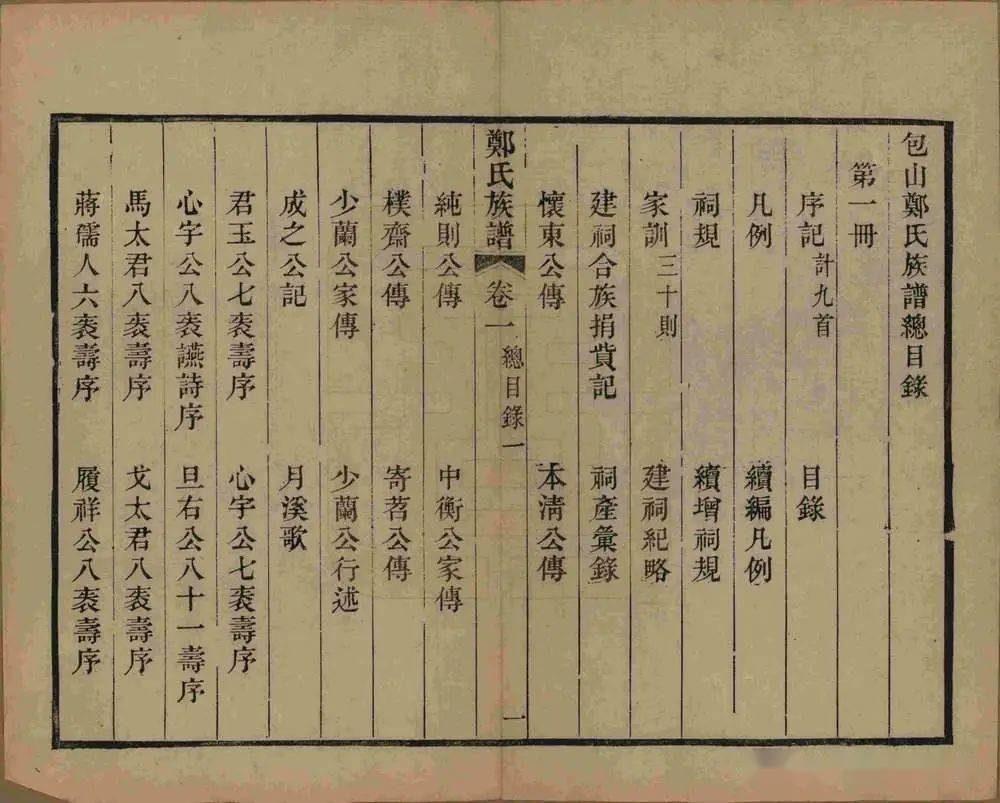 包山鄭氏族譜總目錄
第一冊
序記計九首 目錄
凡例 續編凡例
祠規 續增祠規
家訓三十則 建祠紀略
建祠合族捐貲記 祠產彙錄
懷東公傳 本淸公傳
鄭氏族譜 卷一 總目錄一 一
純則公傳 中衡公家傳
樸齋公傳 寄茗公傳
少蘭公家傳 少蘭公行述
成之公記 月溪歌
君玉公七袠壽序 心宇公七袠壽序
心宇公八袠讌詩序 旦右公八十一壽序
馬太君八袠壽序 戈太君八袠壽序
蔣儒人六袠壽序 履祥公八袠壽序